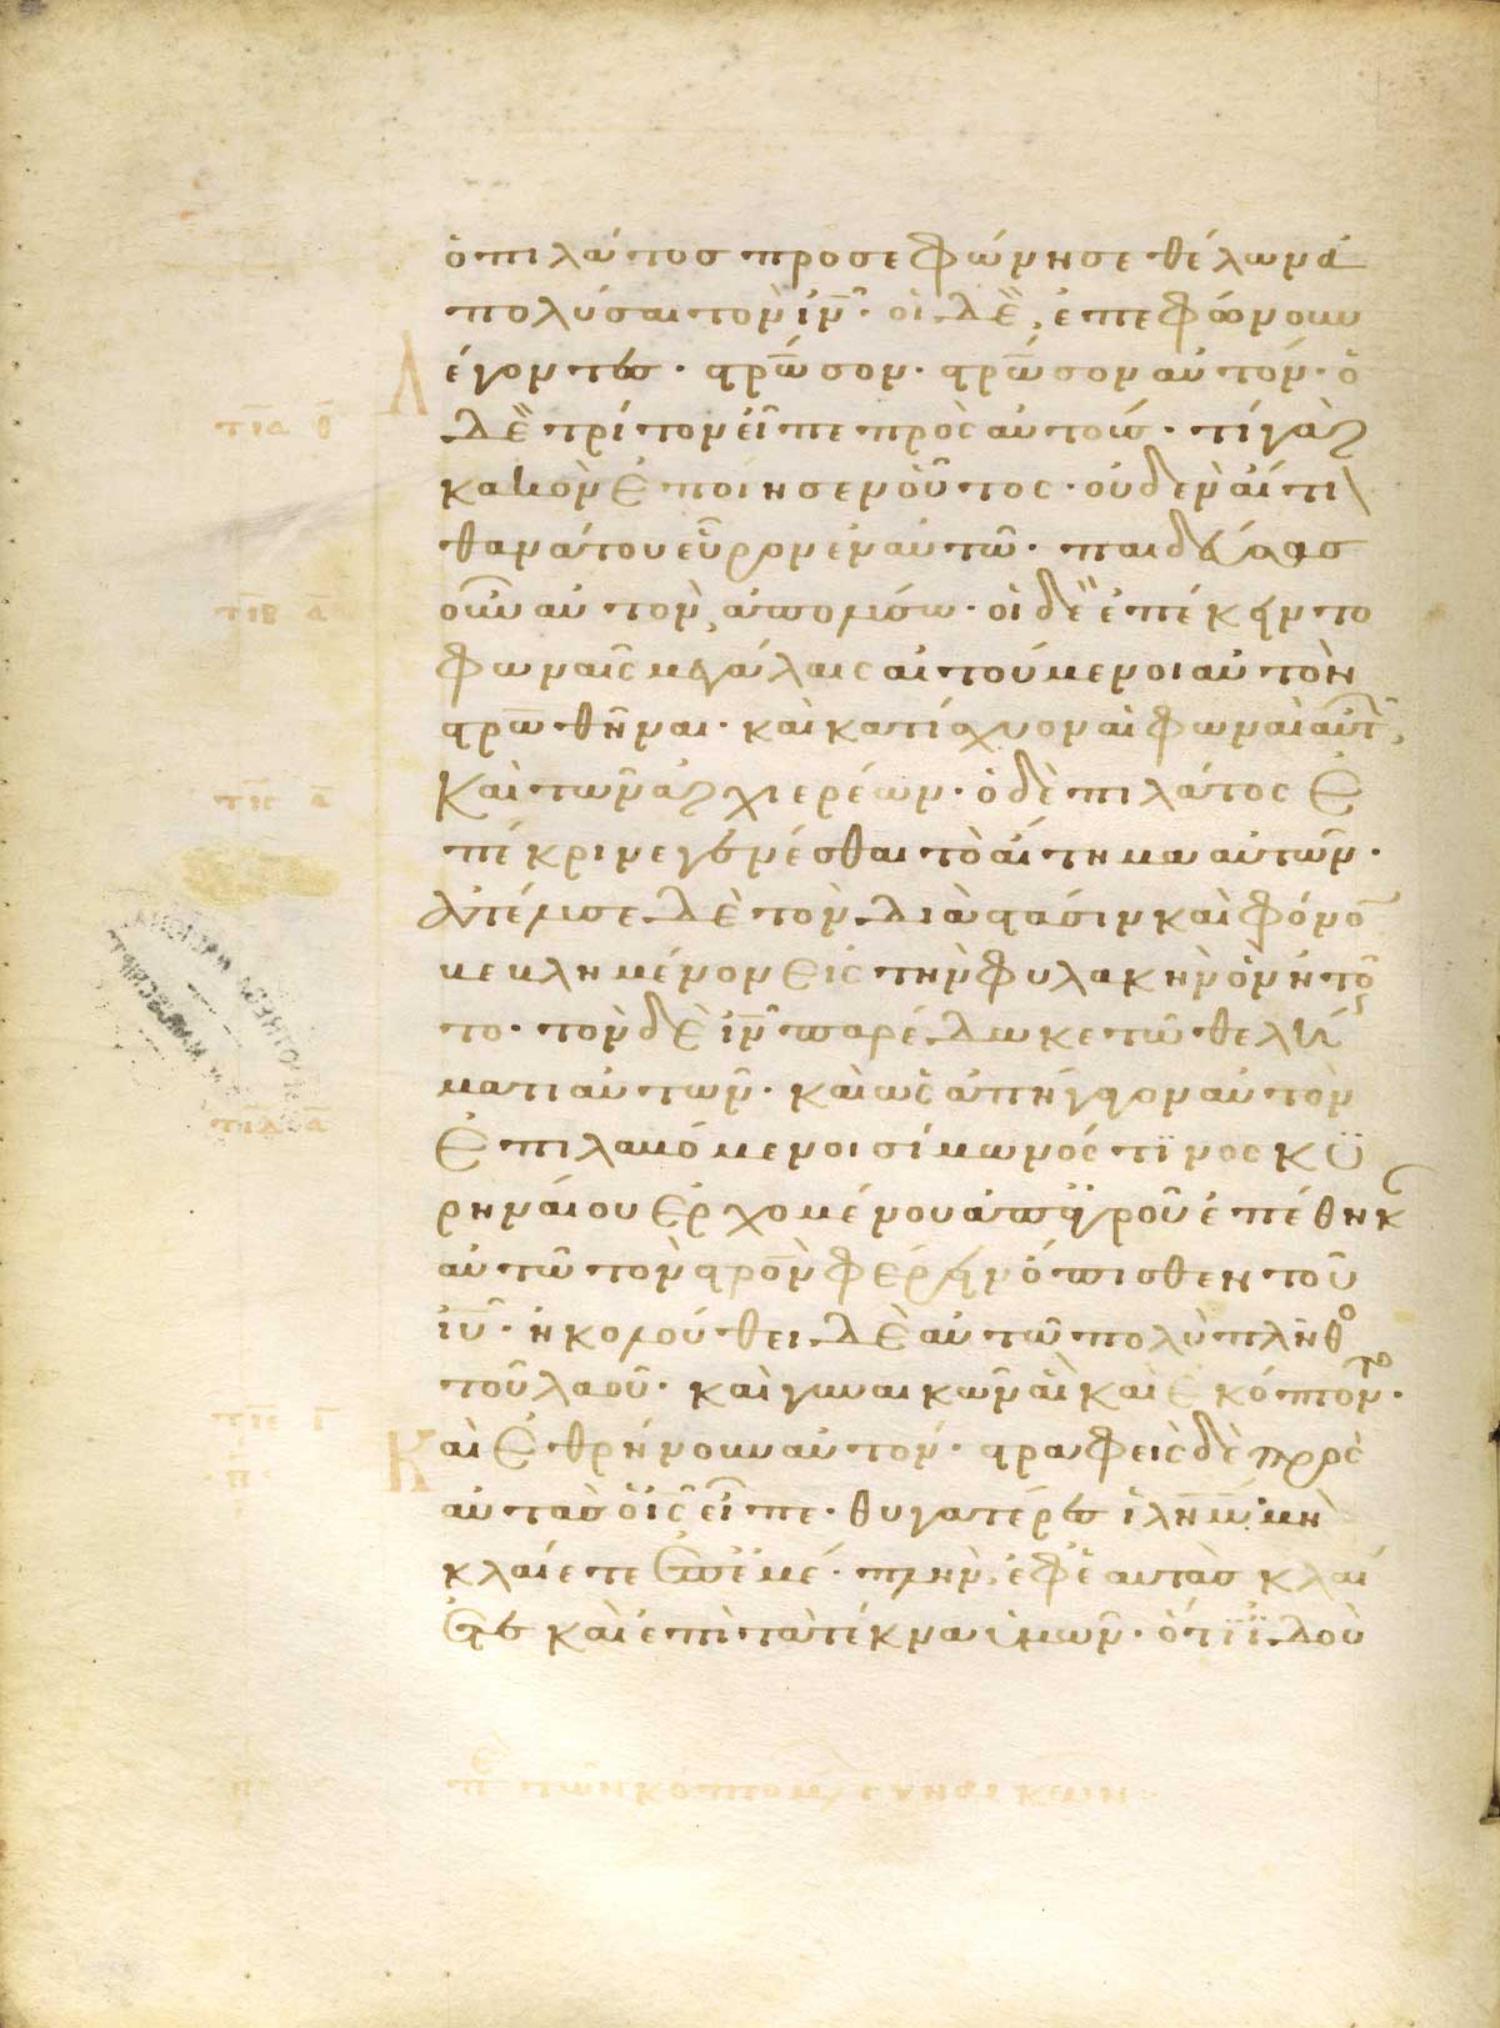 ὁ πιλάτος προσεφώνησε θέλων ἀ
πολύσαι τὸν ἰν̄· οἱ δὲ, ἐπεφώνουν
λέγοντες· στρω̄σον· στρω̄σον αὐτόν· ὁ
τ̄ια θ̄
δὲ τρίτον εἶπε πρὸς αὐτούς· τί γὰρ
κακὸν ἐποίησεν οὗτος· οὐδὲν αἴτι\
θανάτου εὗρον ἐν αὐτῶ· παιδεύσας
τ̄ιβ ᾱ
οὖν αὐτὸν, ἀπολύσω· οἱ δὲ ἐπέκειντο
φωναῖς μεγάλαις αἰτούμενοι αὐτὸν
στρω̄θῆναι· καὶ κατίσχυον αἱ φωναὶ αὐτ,
τ̄ιγ ᾱ
καὶ τῶν ἀρχιερέων· ὁ δὲ πιλάτος ἐ
πέκρινε γενέσθαι τὸ αἴτημα αὐτῶν·
ἀπέλυσε δὲ τὸν διὰ στάσιν καὶ φόνο
βεβλημένον εἰς τὴν φυλακὴν ὃν ἠτοῦ
το· τὸν δὲ ἰν̄ παρέδωκε τῶ θελή
ματι αὐτῶν· καὶ ὡς ἀπήγαγον αὐτὸν
τ̄ιδ ᾱ
ἐπιλαβόμενοι σίμωνός τϊνος κϋ
ρηναίου ἐρχομένου ἀπ' ἀγροῦ ἐπέθηκ
αὐτῶ τὸν στρο̄ν φέρειν ὄπισθεν τοῦ
ῑυ· ἠκολούθει δὲ αὐτῶ πολὺ πλῆθο
τοῦ λαοῦ· καὶ γυναικῶν αἳ καὶ ἐκόπτοντο·
τ̄ιε ῑ
καὶ ἐθρήνουν αὐτόν· στραφεὶς δὲ πρὸς
αὐτὰς ὁ ις̄ εἶπε· θυγατέρες ἰλη̄μ̄ μὴ
κλαίετε ἐπ' ἐμέ· πλὴν, ἐφ' ἑαυτὰς κλαί
ετε καὶ ἐπὶ τὰ τέκνα ὑμῶν· ὅτι ϊδοὺ